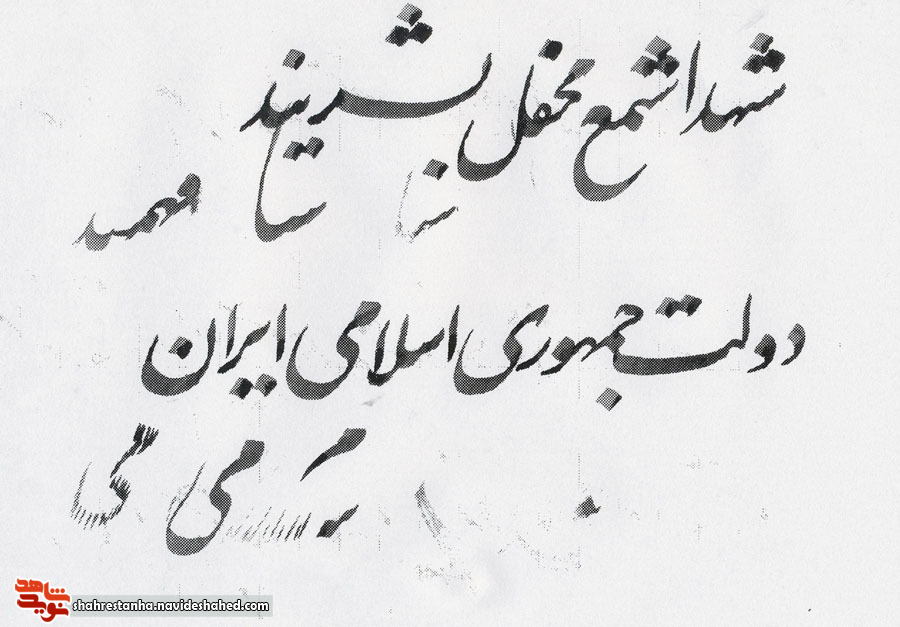 شهدا شمع محفل بشریتند
دولت جمهوری اسلامی ایران
می
نوید شاهد
shahrestanha.navideshahed.com